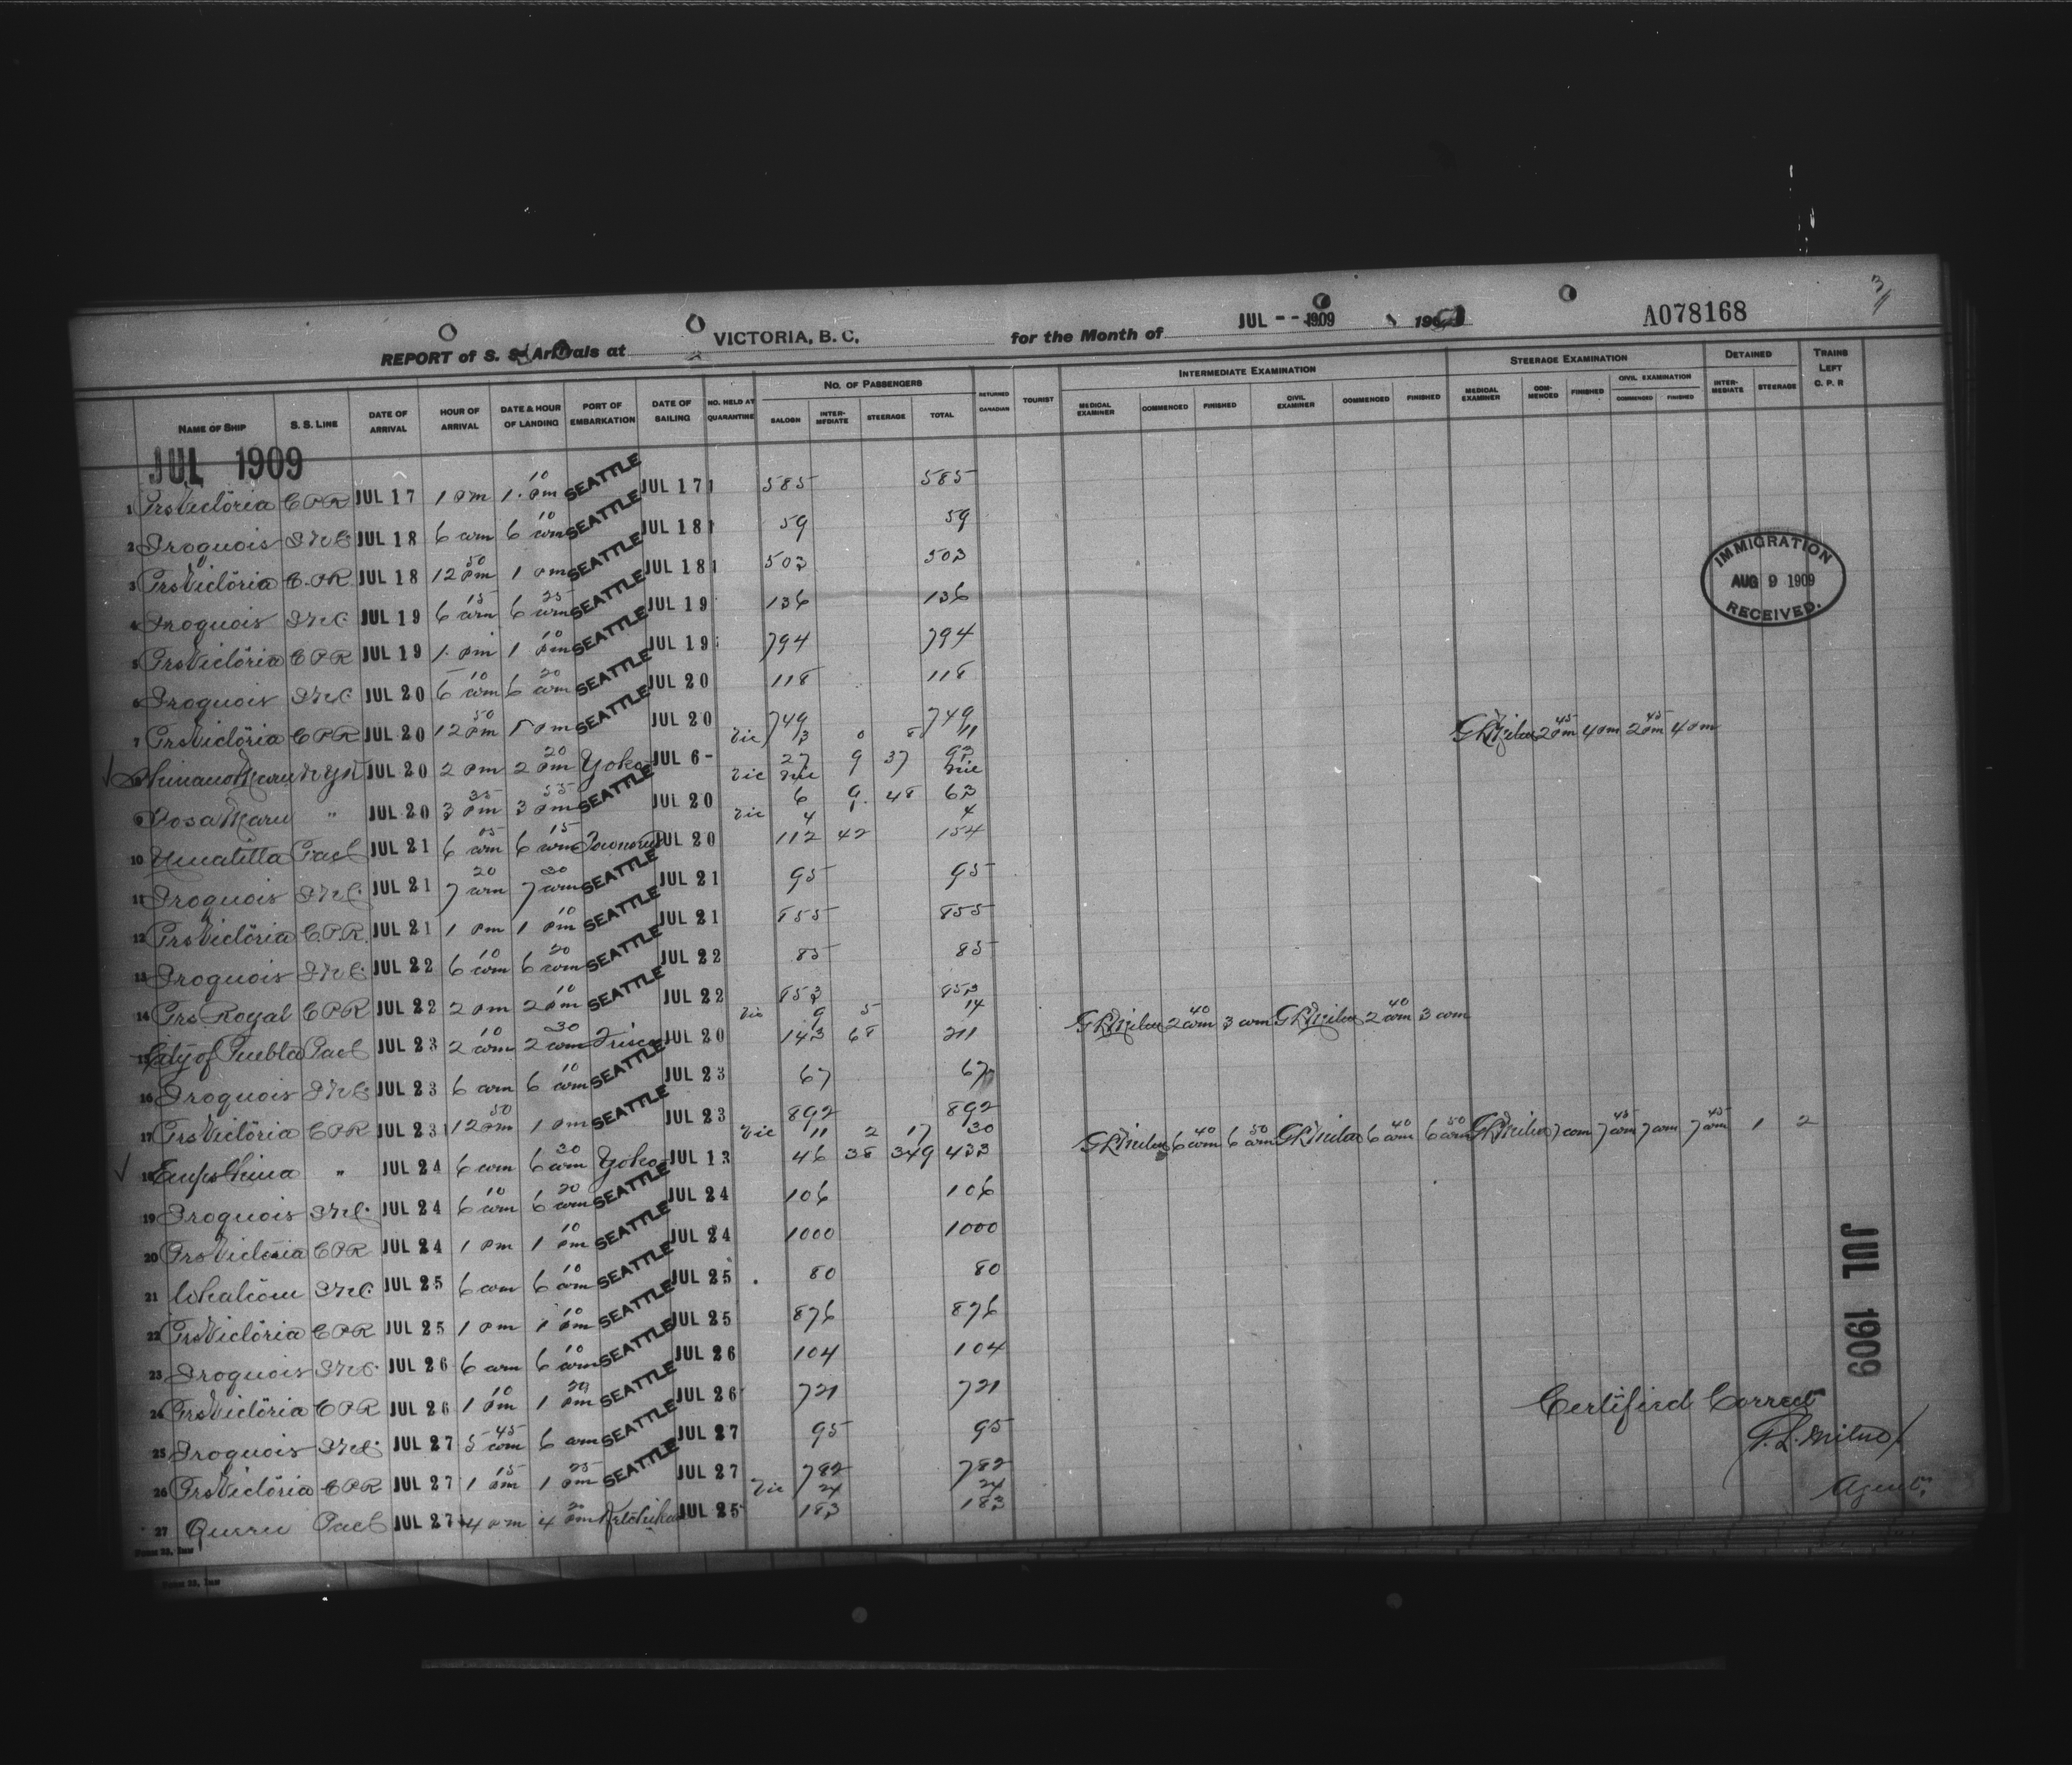 3/
REPORT of S. S. Arrivals at VICTORIA, B. C. for the Month of JUL -- 1909 190 A078168
NAME OF SHIP S. S. LINE DATE OF ARRIVAL HOUR OF ARRIVAL DATE & HOUR OF LANDING PORT OF EMBARKATION DATE OF SAILING NO. HELD AT QUARANTINE NO. OF PASSENGERS SALOON INTERMEDIATE STEERAGE TOTAL RETURNED CANADIAN TOURIST INTERMEDIATE EXAMINATION MEDICAL EXAMINER COMMENCED FINISHED CIVIL EXAMINER COMMENCED FINISHED STEERAGE EXAMINATION MEDICAL EXAMINER COMMENCED FINISHED CIVIL EXAMINATION COMMENCED FINISHED DETAINED INTERMEDIATE STEERAGE TRAINS LEFT C. P. R
JUL 1909
1 Prs Victoria CPR JUL 17 1 pm 1.10 pm SEATTLE JUL 17 585 585
2 Iroquois INC JUL 18 6 am 6 10 am SEATTLE JUL 18 59 59
3 Prs Victoria C.P.R. JUL 18 12 50 pm 1 pm SEATTLE JUL 18 503 503
4 Iroquois INC JUL 19 6 15 am 6 25 am SEATTLE JUL 19 136 136
5 Prs Victoria CPR JUL 19 1. pm 1 10 pm SEATTLE JUL 19 794 794
6 Iroquois INC JUL 20 6 10 am 6 20 am SEATTLE JUL 20 118 118
7 Prs Victoria CPR JUL 20 12 50 pm 1 pm SEATTLE JUL 20 749 749
Vic 3 0 8 11
Shinano Maru NYK JUL 20 2 pm 2 20 pm Yoko JUL 6 - 27 9 37 93 GL Milne 2 45 pm 4 pm 2 45 pm 4 pm
Vic
Tosa Maru " JUL 20 3 35 pm 3 55 pm SEATTLE JUL 20 6 9 48 63
Vic 4 4
10 Umatilla Pac JUL 21 6 05 am 6 15 am JUL 20 112 42 154
11 Iroquois INC. JUL 21 7 20 am 7 30 am SEATTLE JUL 21 95 95
12 Prs Victoria C.P.R. JUL 21 1 pm 1 10 pm SEATTLE JUL 21 855 855
13 Iroquois INC. JUL 22 6 10 am 6 20 am SEATTLE JUL 22 85 85
14 Prs Royal CPR JUL 22 2 pm 2 10 pm SEATTLE JUL 22 853 853
Vic 9 5 14
15 City of Puebla Pac JUL 23 2 10 am 2 30 am Frisco JUL 20 143 68 211 GL Milne 2 40 am 3 am GL Milne 2 40 am 3 am
16 Iroquois INC. JUL 23 6 am 6 10 am SEATTLE JUL 23 67 67
17 Prs Victoria CPR JUL 23 12 50 pm 1 pm SEATTLE JUL 23 892 892
Vic 11 2 17 30
18 Emps China " JUL 24 6 am 6 30 am Yoko JUL 13 46 38 349 433 GL Milne 6 40 am 6 50 am GL Milne 6 40 am 6 50 am GL Milne 7 am 7 45 am 7 am 7 45 am 1 2
19 Iroquois INC. JUL 24 6 10 am 6 20 am SEATTLE JUL 24 106 106
20 Prs Victoria CPR JUL 24 1 pm 1 10 pm SEATTLE JUL 24 1000 1000
21 Whatcom INC JUL 25 6 am 6 10 am SEATTLE JUL 25 80 80
22 Prs Victoria CPR JUL 25 1 pm 1 10 pm SEATTLE JUL 25 876 876
23 Iroquois INC. JUL 26 6 am 6 10 am SEATTLE JUL 26 104 104
24 Prs Victoria CPR JUL 26 1 10 pm 1 20 pm SEATTLE JUL 26 721 721
25 Iroquois INC. JUL 27 5 45 am 6 am SEATTLE JUL 27 95 95
26 Prs Victoria CPR JUL 27 1 15 pm 1 25 pm SEATTLE JUL 27 782 782
Vic 24 24
27 Queen Pac JUL 27 4 pm 4 20 pm Ketchikan JUL 25 183 183
IMMIGRATION
AUG 9 1909
RECEIVED.
JUL 1909
Certified Correct
G. L. Milne
Agent.